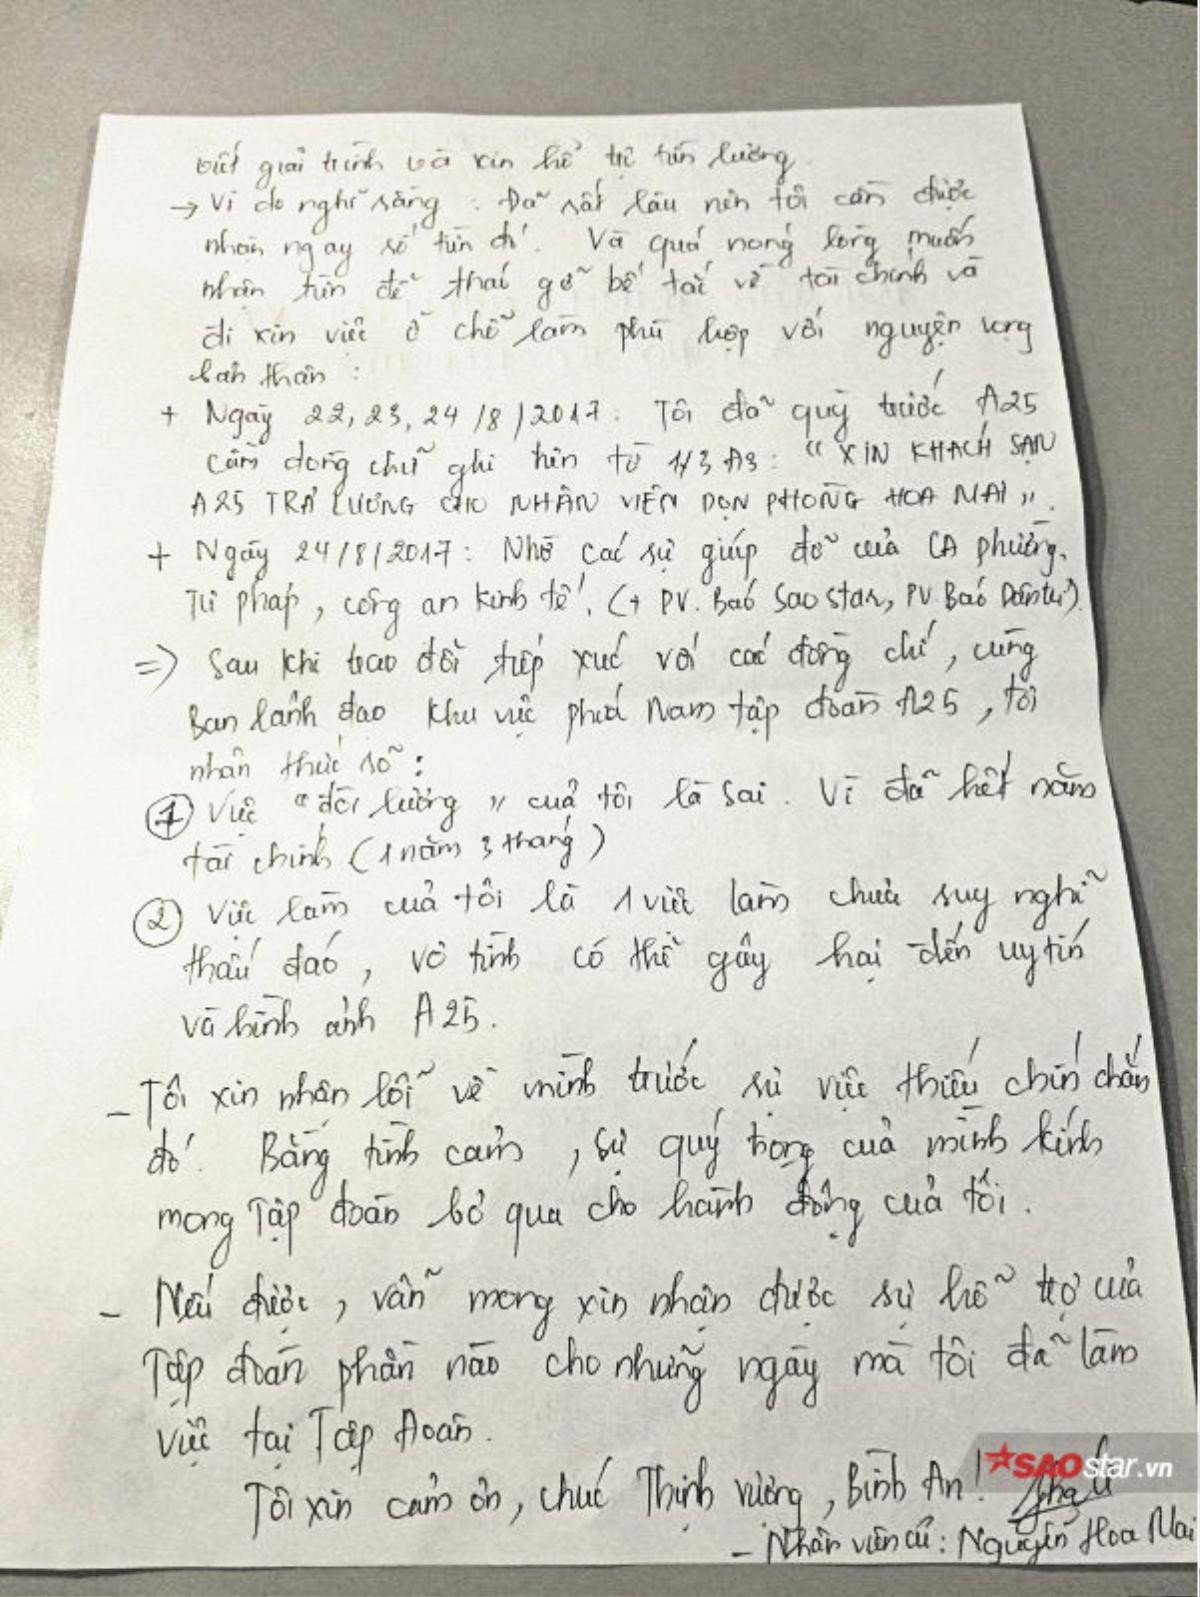 viết giải trình và xin hỗ trợ tiền lương
→ Vì do nghĩ rằng : Đã rất lâu nên tôi cần được
nhận ngay số tiền đó. Và quá nóng lòng muốn
nhận tiền để tháo gỡ bế tắc về tài chính và
đi xin việc ở chỗ làm phù hợp với nguyện vọng
bản thân :
+ Ngày 22, 23, 24/8/2017: Tôi đã quỳ trước A25
cầm dòng chữ ghi trên tờ A3: "XIN KHÁCH SẠN
A25 TRẢ LƯƠNG CHO NHÂN VIÊN DỌN PHÒNG HOA MAI".
+ Ngày 24/8/2017: Nhờ các sự giúp đỡ của CA phường,
Tư pháp, công an kinh tế. (+ PV. Báo Saostar, PV. Báo Dân trí)
=> Sau khi trao đổi tiếp xúc với các đồng chí, cùng
Ban lãnh đạo khu vực phía Nam tập đoàn A25, tôi
nhận thức rõ:
① Việc "đòi lương" của tôi là sai. Vì đã hết năm
tài chính (1 năm 3 tháng)
② Việc làm của tôi là 1 việc làm chưa suy nghĩ
thấu đáo, vô tình có thể gây hại đến uy tín
và hình ảnh A25.
- Tôi xin nhận lỗi về mình trước sự việc thiếu chín chắn
đó. Bằng tình cảm, sự quý trọng của mình kính
mong Tập đoàn bỏ qua cho hành động của tôi.
- Nếu được, vẫn mong xin nhận được sự hỗ trợ của
Tập đoàn phần nào cho những ngày mà tôi đã làm
việc tại Tập Đoàn.
Tôi xin cảm ơn, chúc Thịnh vượng, Bình An!
SAOstar.vn
- Nhân viên cũ: Nguyễn Hoa Mai